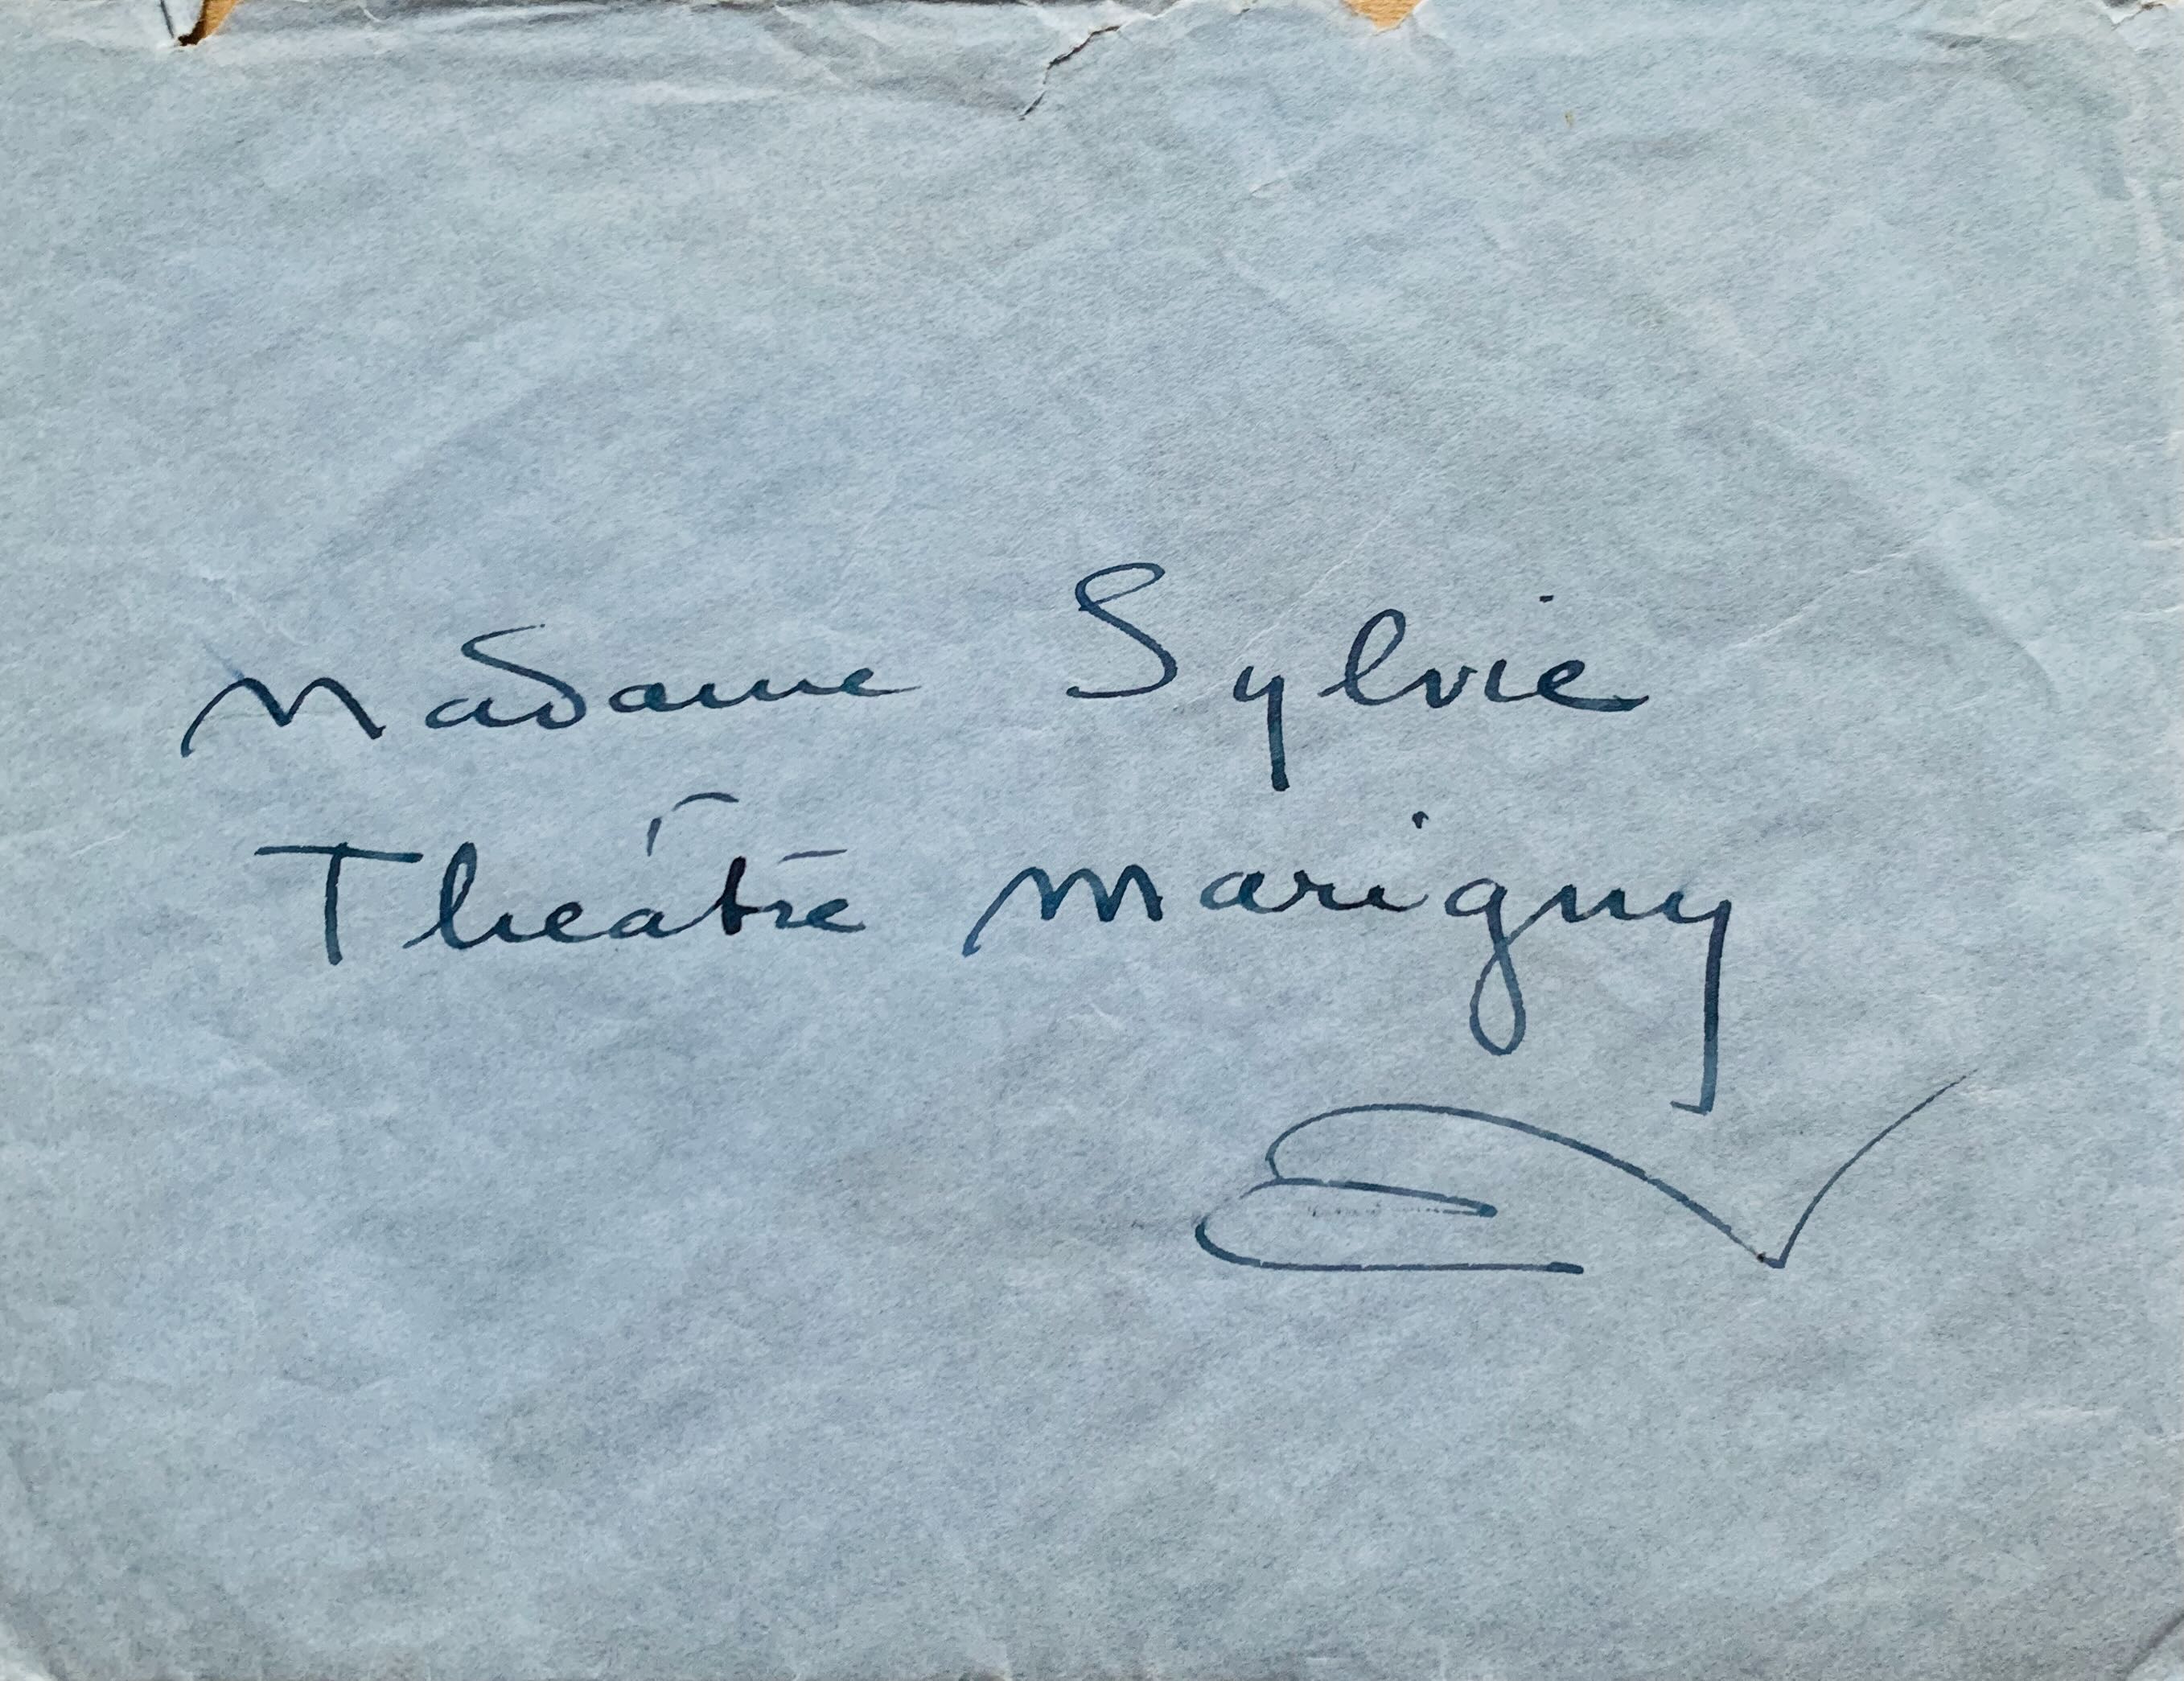 Madame Sylvie
Théâtre Marigny